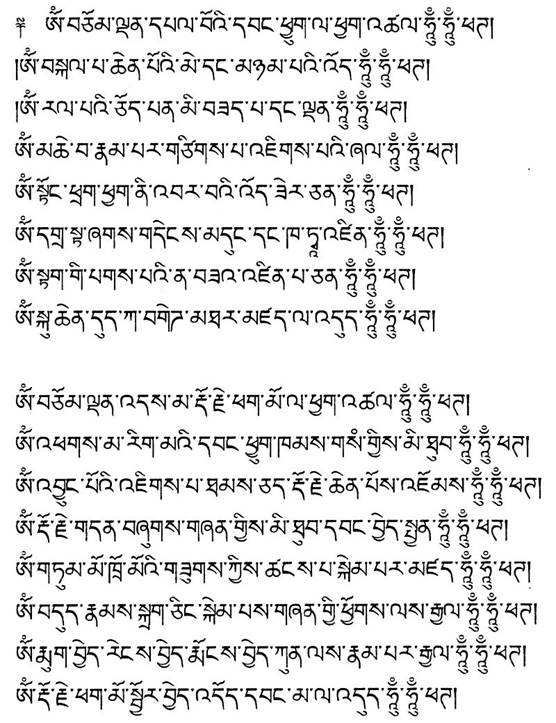 ༈ ༀ་བཅོམ་ལྡན་དཔལ་བོའི་དབང་ཕྱུག་ལ་ཕྱག་འཚལ་ཧཱུྃ་ཧཱུྃ་ཕཊ།
།ༀ་བསྐལ་པ་ཆེན་པོའི་མེ་དང་མཉམ་པའི་འོད་ཧཱུྃ་ཧཱུྃ་ཕཊ།
།ༀ་རལ་པའི་ཅོད་པན་མི་བཟད་པ་དང་ལྡན་ཧཱུྃ་ཧཱུྃ་ཕཊ།
ༀ་མཆེ་བ་རྣམ་པར་གཙིགས་པ་འཇིགས་པའི་ཞལ་ཧཱུྃ་ཧཱུྃ་ཕཊ།
ༀ་སྟོང་ཕྲག་ཕྱག་ནི་འབར་བའི་འོད་ཟེར་ཅན་ཧཱུྃ་ཧཱུྃ་ཕཊ།
ༀ་དགྲ་སྟ་ཞགས་གདེངས་མདུང་དང་ཁ་ཊྭཱྃ་འཛིན་ཧཱུྃ་ཧཱུྃ་ཕཊ།
ༀ་སྟག་གི་པགས་པའི་ན་བཟའ་འཛིན་པ་ཅན་ཧཱུྃ་ཧཱུྃ་ཕཊ།
ༀ་སྐུ་ཆེན་དུད་ཀ་བགེཊ་མཐར་མཛད་ལ་འདུད་ཧཱུྃ་ཧཱུྃ་ཕཊ།
ༀ་བཅོམ་ལྡན་འདས་མ་རྡོ་རྗེ་ཕག་མོ་ལ་ཕྱག་འཚལ་ཧཱུྃ་ཧཱུྃ་ཕཊ།
ༀ་འཕགས་མ་རིག་མའི་དབང་ཕྱུག་ཁམས་གསཾ་གྱིས་མི་ཐུབ་ཧཱུྃ་ཧཱུྃ་ཕཊ།
ༀ་འབྱུང་པོའི་འཇིགས་པ་ཐམས་ཅད་རྡོ་རྗེ་ཆེན་པོས་འཇོམས་ཧཱུྃ་ཧཱུྃ་ཕཊ།
ༀ་རྡོ་རྗེ་གདན་བཞུགས་གཞན་གྱིས་མི་ཐུབ་དབང་བྱེད་སྤྱན་ཧཱུྃ་ཧཱུྃ་ཕཊ།
ༀ་གཏུམ་མོ་ཁྲོ་མོའི་གཟུགས་ཀྱིས་ཚངས་པ་སྐེམ་པར་མཛད་ཧཱུྃ་ཧཱུྃ་ཕཊ།
ༀ་བདུད་རྣམས་སྐྲག་ཅིང་སྐེམ་པས་གཞན་གྱི་ཕྱོགས་ལས་རྒྱལ་ཧཱུྃ་ཧཱུྃ་ཕཊ།
ༀ་རྨུག་བྱེད་རེངས་བྱེད་རྨོངས་བྱེད་ཀུན་ལས་རྣམ་པར་རྒྱལ་ཧཱུྃ་ཧཱུྃ་ཕཊ།
ༀ་རྡོ་རྗེ་ཕག་མོ་སྦྱོར་བྱེད་འདོད་དབང་མ་ལ་འདུད་ཧཱུྃ་ཧཱུྃ་ཕཊ།